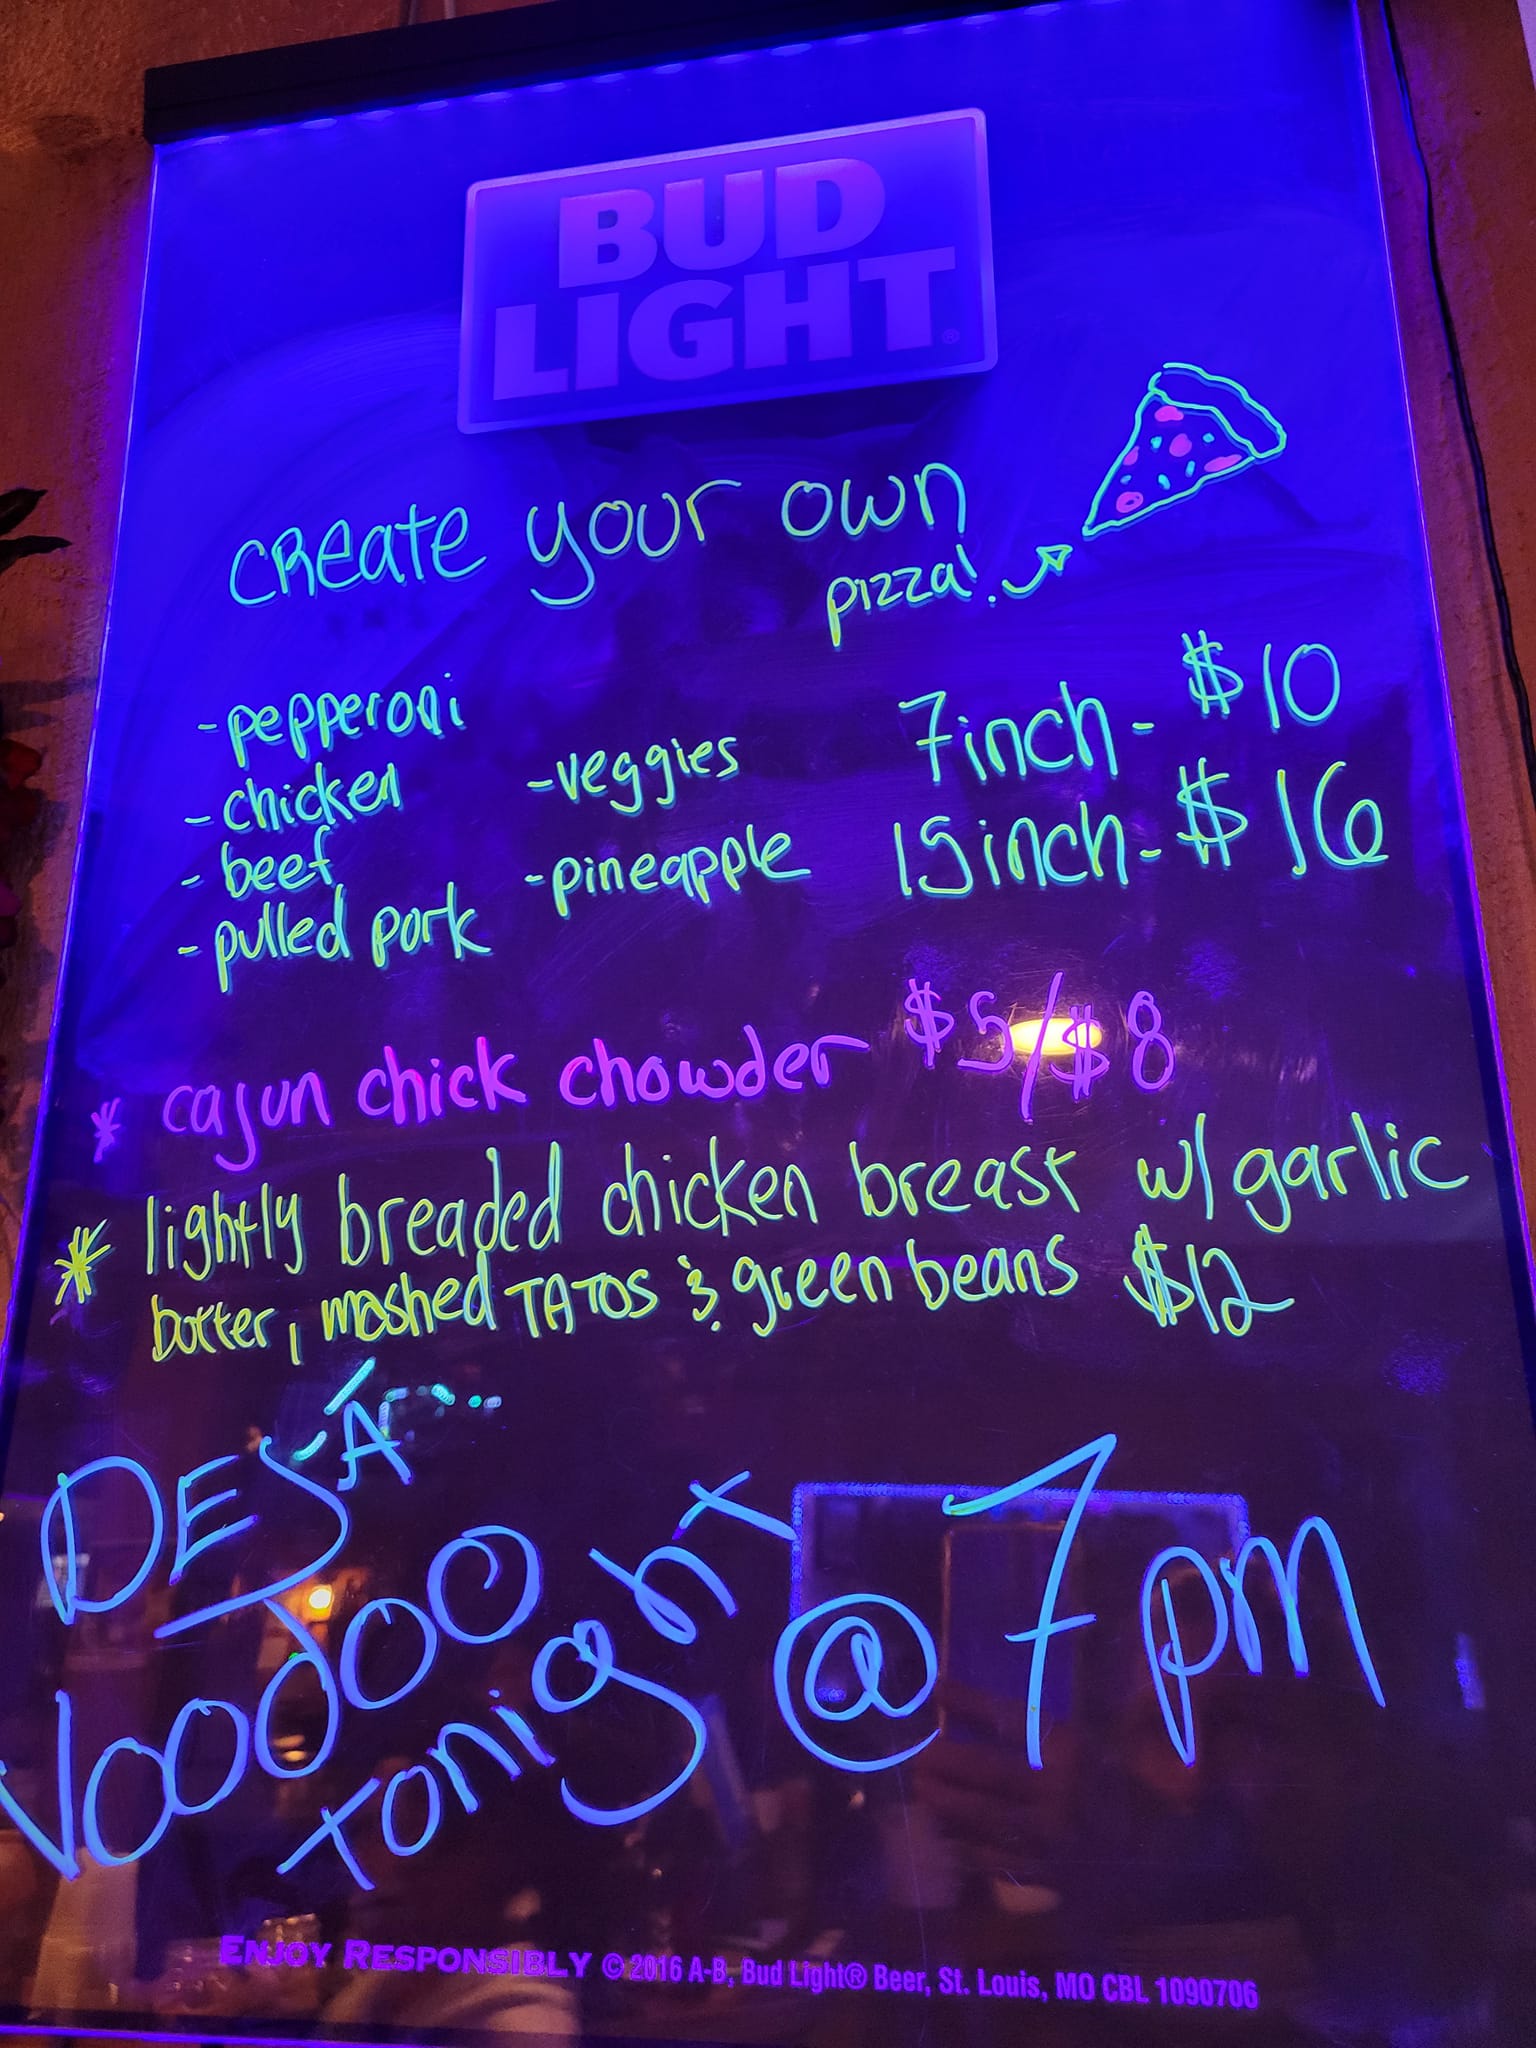 BUD
LIGHT®
create your own
pizza!
-pepperoni
-chicken
-beef
-pulled pork
-veggies
-pineapple
7inch- $10
15inch- $16
* cajun chick chowder $5/$8
* lightly breaded chicken breast w/ garlic
butter, mashed TATOS & green beans $12
DEJA
VOODOO
Tonight @ 7pm
ENJOY RESPONSIBLY © 2016 A-B, Bud Light® Beer, St. Louis, MO CBL 1090706